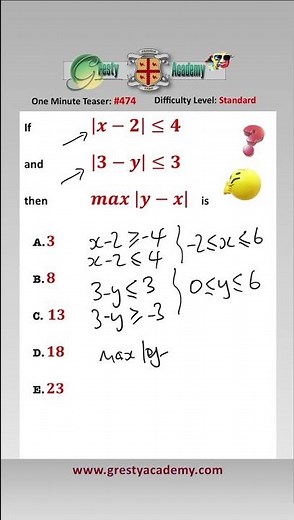 Gresty Academy
One Minute Teaser: #474 Difficulty Level: Standard
If |x − 2| ≤ 4
and |3 − y| ≤ 3
then max |y − x| is
A. 3
B. 8
C. 13
D. 18
E. 23
x-2 ≥ -4
x-2 ≤ 4
-2 ≤ x ≤ 6
3-y ≤ 3
3-y ≥ -3
0 ≤ y ≤ 6
max |y-
www.grestyacademy.com